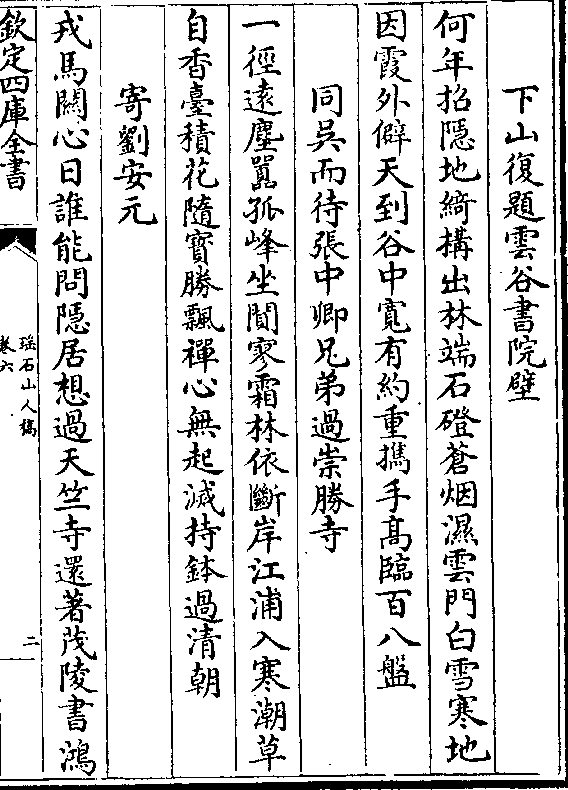 下山復題雲谷書院壁
何年招隠地綺構出林端石磴蒼烟濕雲門白雪寒地
因霞外僻天到谷中寛有約重攜手髙臨百八盤
同吳而待張中卿兄弟過崇勝寺
一徑逺塵囂孤峰坐閴寥霜林依斷岸江浦入寒潮草
自香臺積花隨寳勝飄禪心無起滅持鉢過清朝
寄劉安元
戎馬闗心日誰能問隠居想過天竺寺還著茂陵書鴻
欽定四庫全書
瑶石山人稿
卷六
二